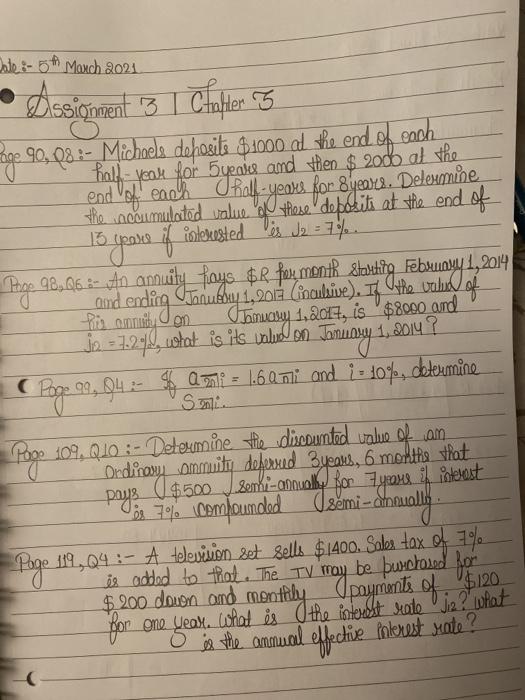 Date :- 5th March 2021
Assignment 3 | Chapter 3
Page 90, Q8 :- Michaels deposits $1000 at the end of each
half-year for 5years and then $ 2000 at the
end of each half-years for 8years. Determine
the accumulated value of these deposits at the end of
13 years if interested is J2 = 7%.
Page 98, Q6 :- An annuity pays $R per month starting February 1, 2014
and ending January 1, 2017 (inculsive). If the value of
this annuity on January 1, 2017, is $8000 and
j12 = 7.2%, what is its value on January 1, 2014 ?
Page 99, Q4 :- If a2n|i = 1.6 an|i and i = 10%, determine
S2n|i.
Page 109, Q10 :- Determine the discounted value of an
Ordinary annuity deferred 3years, 6 months that
pays $500 semi-annually for 7years if interest
is 7% compounded semi-annually.
Page 119, Q4 :- A television set sells $1400. Sales tax of 7%
is added to that. The TV may be purchased for
$ 200 down and monthly payments of $120
for one year. What is the interest rate j12? what
is the annual effective interest rate ?